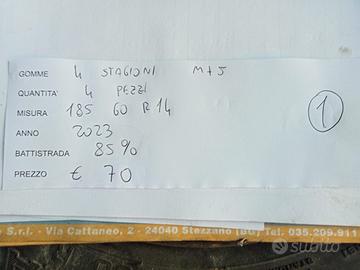 GOMME 4 STAGIONI M+S
QUANTITA' 4 PEZZI
MISURA 185 60 R14
1
ANNO 2023
BATTISTRADA 85%
PREZZO € 70
S.r.l. - Via Cattaneo, 2 - 24040 Stezzano (BG) Tel. 035.209.911
subito